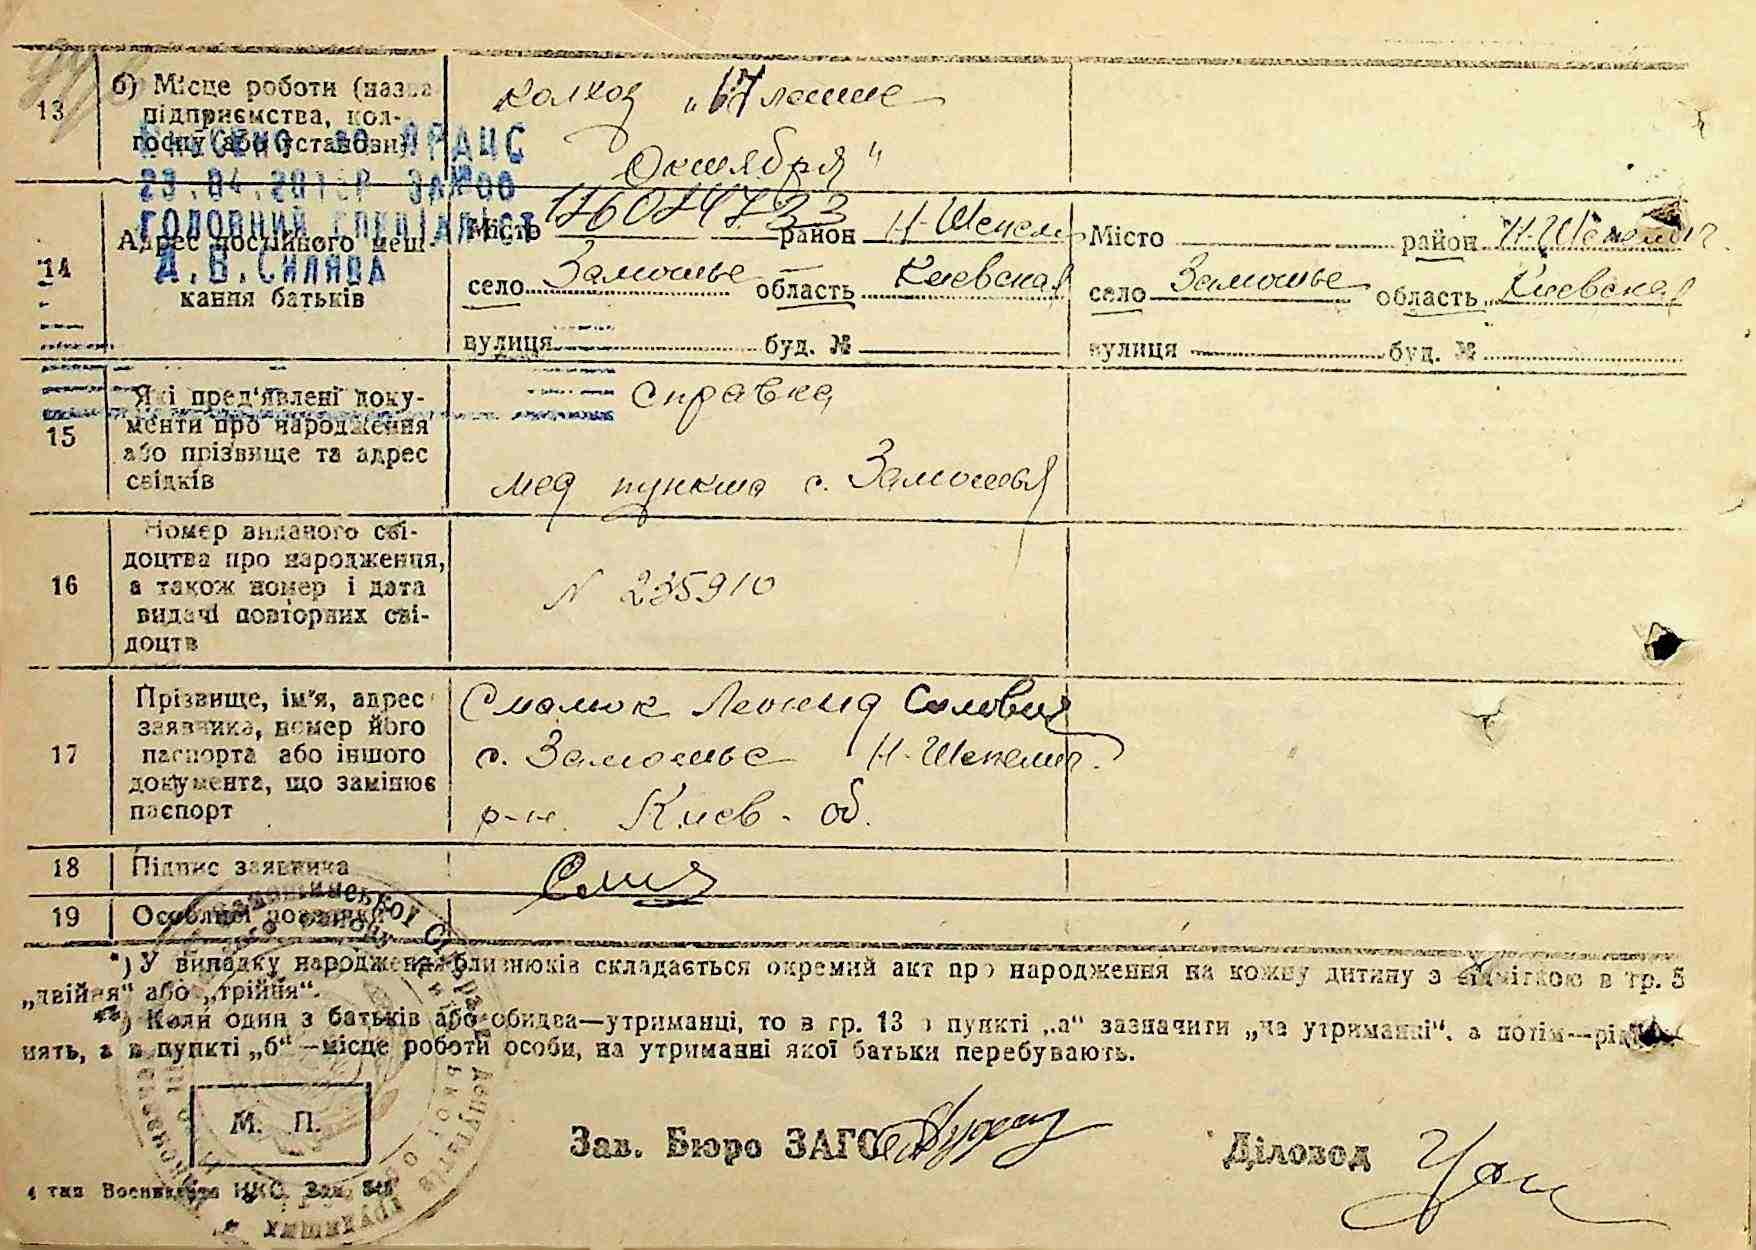 13
б) Місце роботи (назва
підприємства, кол-
госпу або установи)
колхоз „17 летие
Октября"
ВНЕСЕНО ДО ДРАЦС
ГОЛОВНИЙ СПЕЦІАЛІСТ
14
Адрес постійного меш-
кання батьків
Місто район Н-Шепел
село Замошье область Киевская
вулиця буд. №
Місто район Н-Шепелич.
село Замошье область Киевская
вулиця буд. №
15
Які пред'явлені доку-
менти про народження
або прізвище та адрес
свідків
справка
мед пункта с. Замошья
16
Номер виданого сві-
доцтва про народження,
а також номер і дата
видачі повторних сві-
доцтв
N 235910
17
Прізвище, ім'я, адрес
заявника, номер його
паспорта або іншого
документа, що замінює
паспорт
Смалюк Леонид
с. Замошье Н-Шепелич.
р-н. Киев. об.
18
Підпис заявника
19
Особливі позначки
*) У випадку народження близнюків складається окремий акт про народження на кожну дитину з відміткою в гр. 5
„двійня" або „трійня".
**) Коли один з батьків або обидва—утриманці, то в гр. 13 в пункті „а" зазначити „на утриманні", а потім—рід
нять, а в пункті „б"—місце роботи особи, на утриманні якої батьки перебувають.
М. П.
Зав. Бюро ЗАГС
Діловод